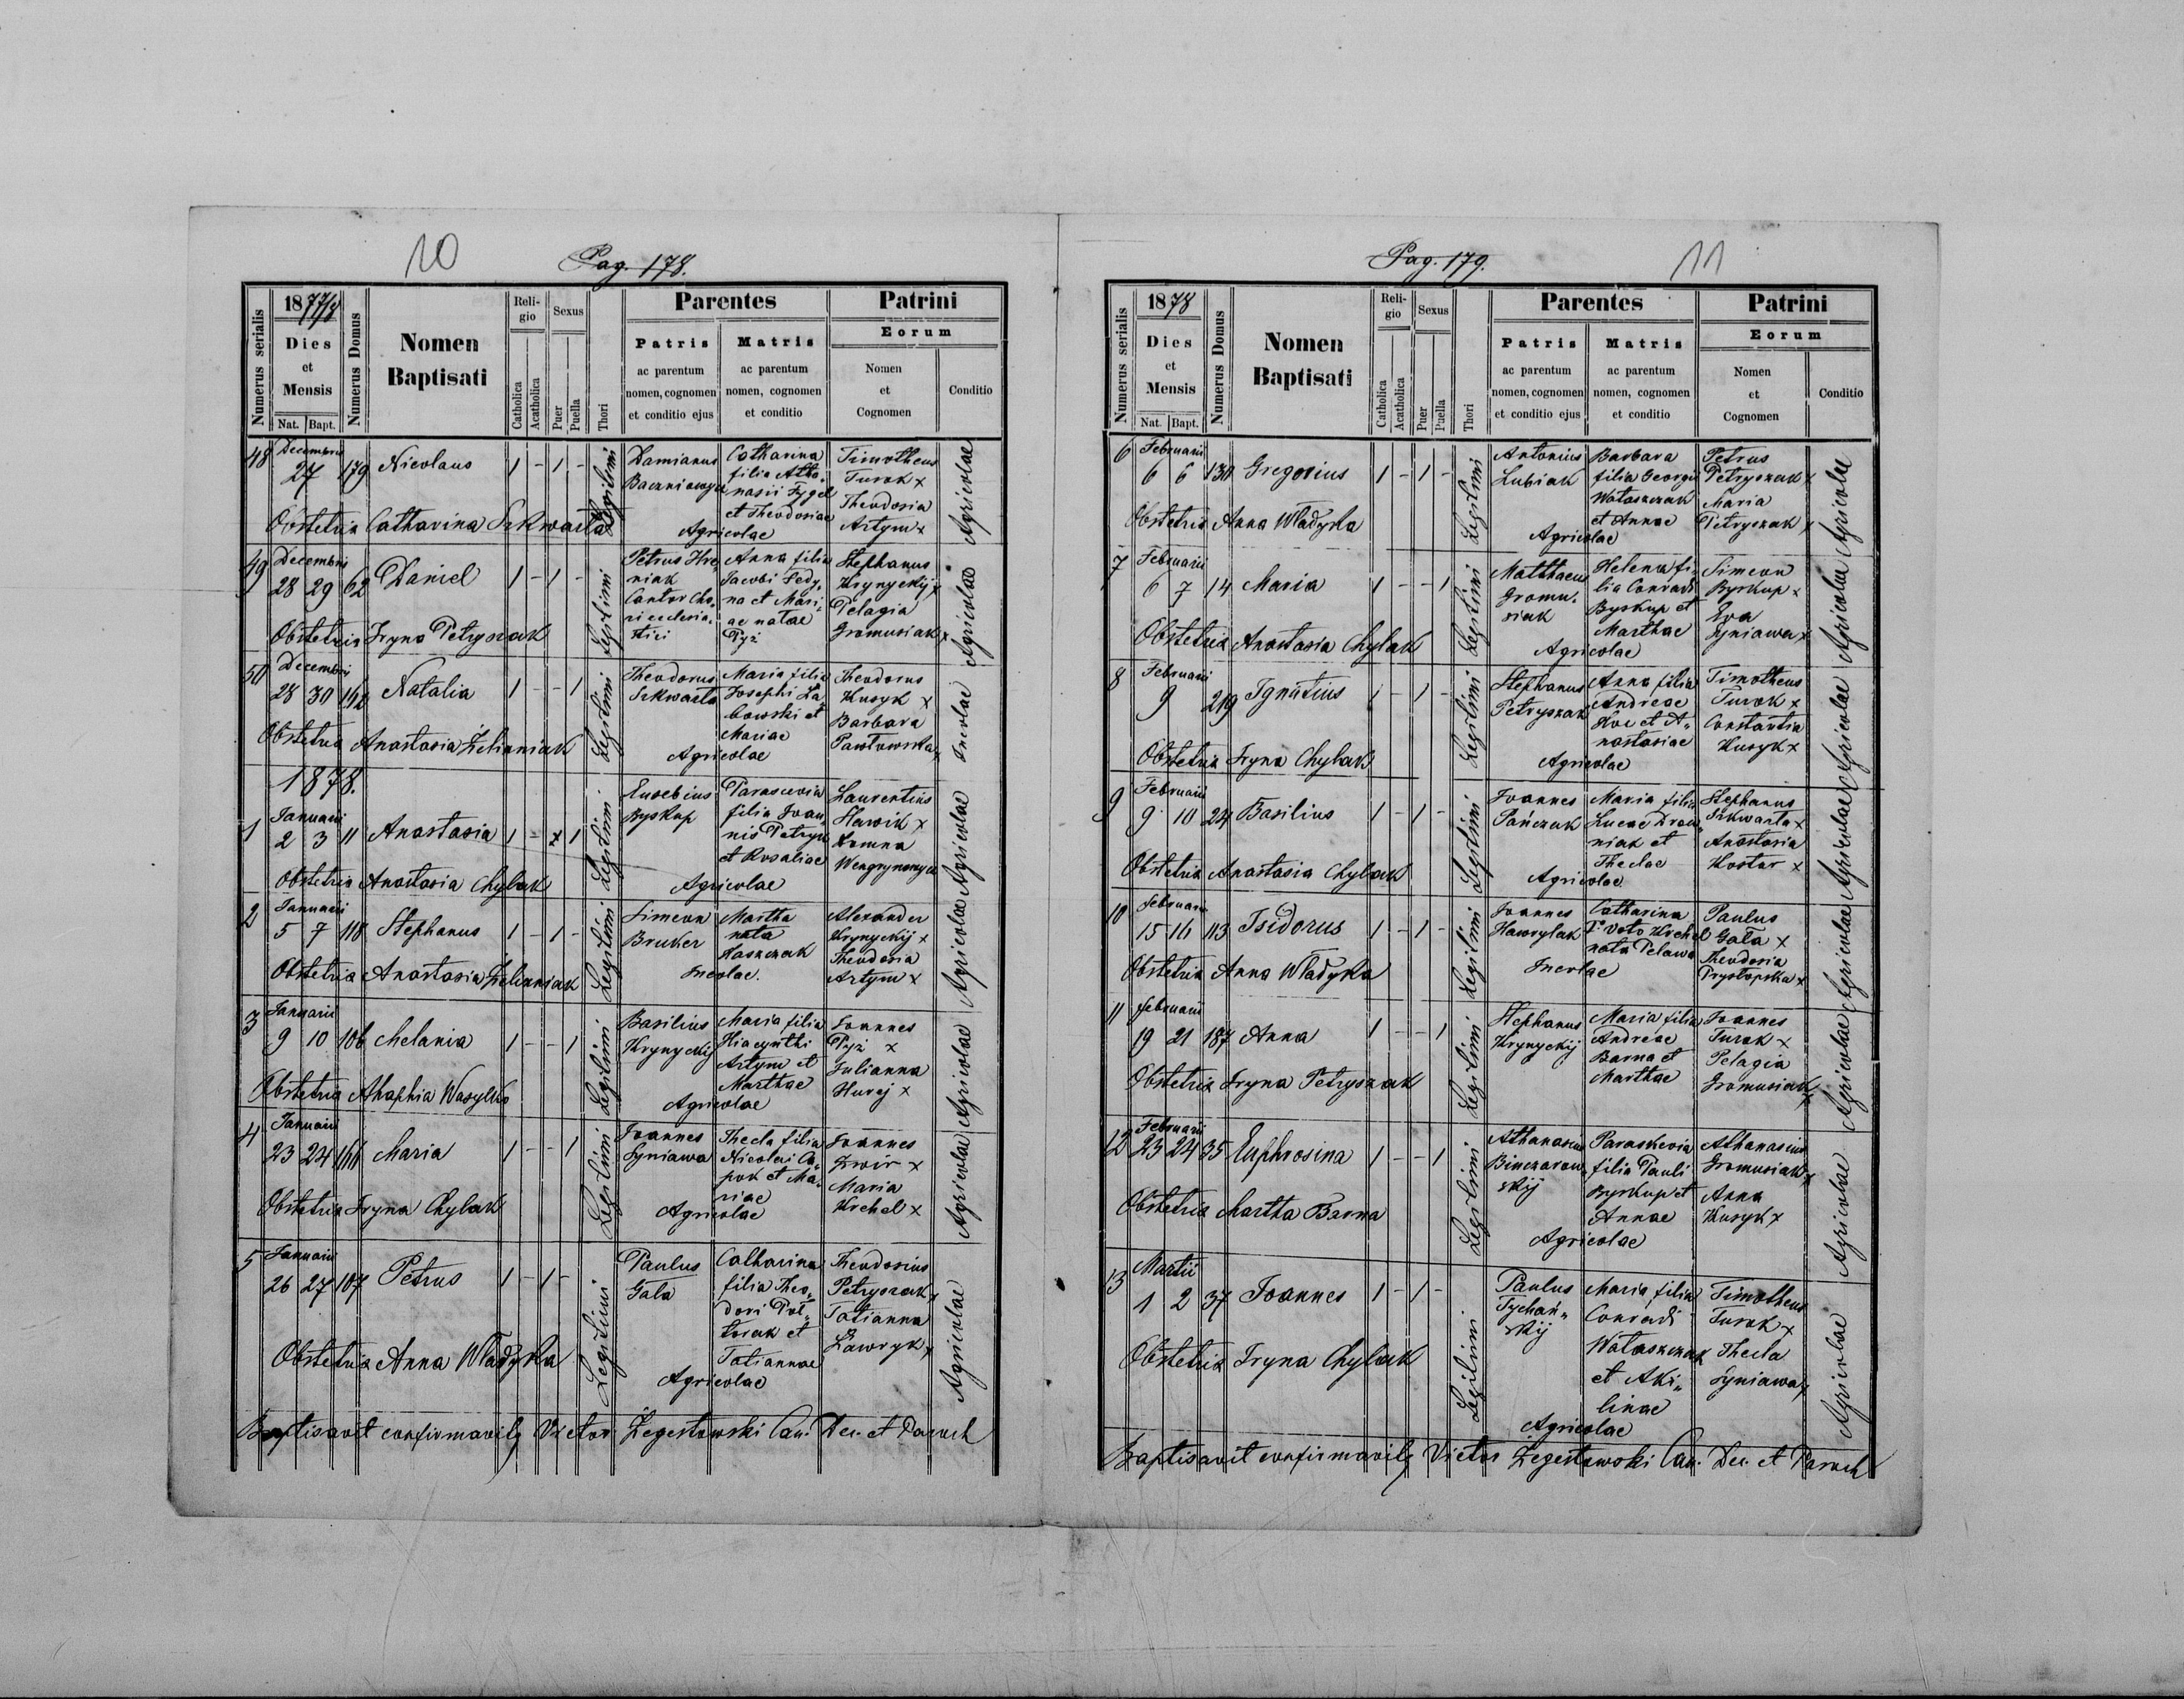 10
Pag. 178.
Numerus serialis
1877/8
Dies
et
Mensis
Nat. Bapt.
Numerus Domus
Nomen
Baptisati
Reli-
gio
Catholica
Acatholica
Sexus
Puer
Puella
Thori
Parentes
Patris
ac parentum
nomen, cognomen
et conditio ejus
Matris
ac parentum
nomen, cognomen
et conditio
Patrini
Eorum
Nomen
et
Cognomen
Conditio
48
Decembris
27 179 Nicolaus 1 - 1 -
Legitimi
Damianus
Catharina
filia Atha-
nasii Fygel
et Theodosiae
Agricolae
Timotheus
Turok x
Theodosia
Artym x
Agricolae
Obstetrix Catharina Szkwarla
49
Decembris
28 29 62 Daniel 1 - 1 -
Legitimi
Petrus Hre-
niak
Cantor Cho-
ri ecclesia-
stici
Anna filia
Jacobi Fedy-
na et Mari-
ae natae
Pyż
Stephanus
Krynyckij x
Pelagia
Gromusiak x
Agricolae
Obstetrix Iryna Petryszak
50
Decembris
28 30 192 Natalia 1 - - 1
Legitimi
Theodorus
Szkwarla
Maria filia
Josephi Ła-
bowski et
Mariae
Agricolae
Theodorus
Kusyk x
Barbara
Pawłowska x
Incolae
Obstetrix Anastasia Żelizniak
1878.
1
Januarii
2 3 11 Anastasia 1 - x 1
Legitimi
Eusebius
Byskup
Parascevia
filia Joan-
nis Petryk
et Rosaliae
Agricolae
Laurentius
Hawik x
Domna
Agricolae
Obstetrix Anastasia Chylak
2
Januarii
5 7 118 Stephanus 1 - 1 -
Legitimi
Simeon
Bruker
Martha
nata
Haszczak
Incolae.
Alexander
Krynyckij x
Theodosia
Artym x
Agricolae
Obstetrix Anastasia Żelizniak
3
Januarii
9 10 106 Melania 1 - - 1
Legitimi
Basilius
Krynyckij
Maria filia
Hiacynthi
Artym et
Marthae
Agricolae
Joannes
Pyż x
Julianna
Huraj x
Agricolae
Obstetrix Ahaphia Wasylko
4
Januarii
23 24 166 Maria 1 - - 1
Legitimi
Joannes
Syniawa
Thecla filia
Nicolai Ca-
pok et Ma-
riae
Agricolae
Joannes
Żwir x
Maria
Krehel x
Agricolae
Obstetrix Iryna Chylak
5
Januarii
26 27 107 Petrus 1 - 1 -
Legitimi
Paulus
Gala
Catharina
filia Theo-
dori Poł-
torak et
Tatiannae
Agricolae
Theodosius
Petryszak x
Tatianna
Ławryk x
Agricolae
Obstetrix Anna Władyka
Baptisavit confirmavitq Victor Żegestowski Can. Dec. et Paroch
Pag. 179.
11
Numerus serialis
1878
Dies
et
Mensis
Nat. Bapt.
Numerus Domus
Nomen
Baptisati
Reli-
gio
Catholica
Acatholica
Sexus
Puer
Puella
Thori
Parentes
Patris
ac parentum
nomen, cognomen
et conditio ejus
Matris
ac parentum
nomen, cognomen
et conditio
Patrini
Eorum
Nomen
et
Cognomen
Conditio
6
Februarii
6 6 130 Gregorius 1 - 1 -
Legitimi
Antonius
Lubiak
Barbara
filia Georgii
Wataszczak
et Annae
Agricolae
Petrus
Petryszak x
Maria
Petryszak x
Agricolae
Obstetrix Anna Władyka
7
Februarii
6 7 14 Maria 1 - - 1
Legitimi
Matthaeus
Gromu-
siak
Helena fi-
lia Conradi
Byskup et
Marthae
Agricolae
Simeon
Byskup x
Eva
Syniawa x
Agricolae
Obstetrix Anastasia Chylak
8
Februarii
9 219 Ignatius 1 - 1 -
Legitimi
Stephanus
Petryszak
Anna filia
Andreae
Hoc et A-
nastasiae
Agricolae
Timotheus
Turok x
Constantia
Kusyk x
Agricolae
Obstetrix Iryna Chylak
9
Februarii
9 10 24 Basilius 1 - 1 -
Legitimi
Joannes
Pańczak
Maria filia
Lucae Drou-
niak et
Theclae
Agricolae
Stephanus
Szkwarla x
Anastasia
Kostar x
Agricolae
Obstetrix Anastasia Chylak
10
Februarii
15 16 113 Isidorus 1 - 1 -
Legitimi
Joannes
Hawrylak
Catharina
1º Voto Krehel
nata Pelawa
Incolae
Paulus
Gala x
Theodosia
Prystopska x
Agricolae
Obstetrix Anna Władyka
11
Februarii
19 21 187 Anna 1 - - 1
Legitimi
Stephanus
Krynyckij
Maria filia
Andreae
Barna et
Marthae
Joannes
Turok x
Pelagia
Gromusiak x
Agricolae
Obstetrix Iryna Petryszak
12
Februarii
23 24 35 Euphrosina 1 - - 1
Legitimi
Athanasius
Binczarow-
skij
Paraskevia
filia Pauli
Byskup et
Annae
Agricolae
Athanasius
Gromusiak x
Anna
Kusyk x
Agricolae
Obstetrix Martha Barna
13
Martii
1 2 37 Joannes 1 - 1 -
Legitimi
Paulus
Tychań-
skij
Maria filia
Conradi
Wataszczak
et Aki-
linae
Agricolae
Timotheus
Turok x
Thecla
Syniawa x
Agricolae
Obstetrix Iryna Chylak
Baptisavit confirmavitq Victor Żegestowski Can. Dec. et Paroch